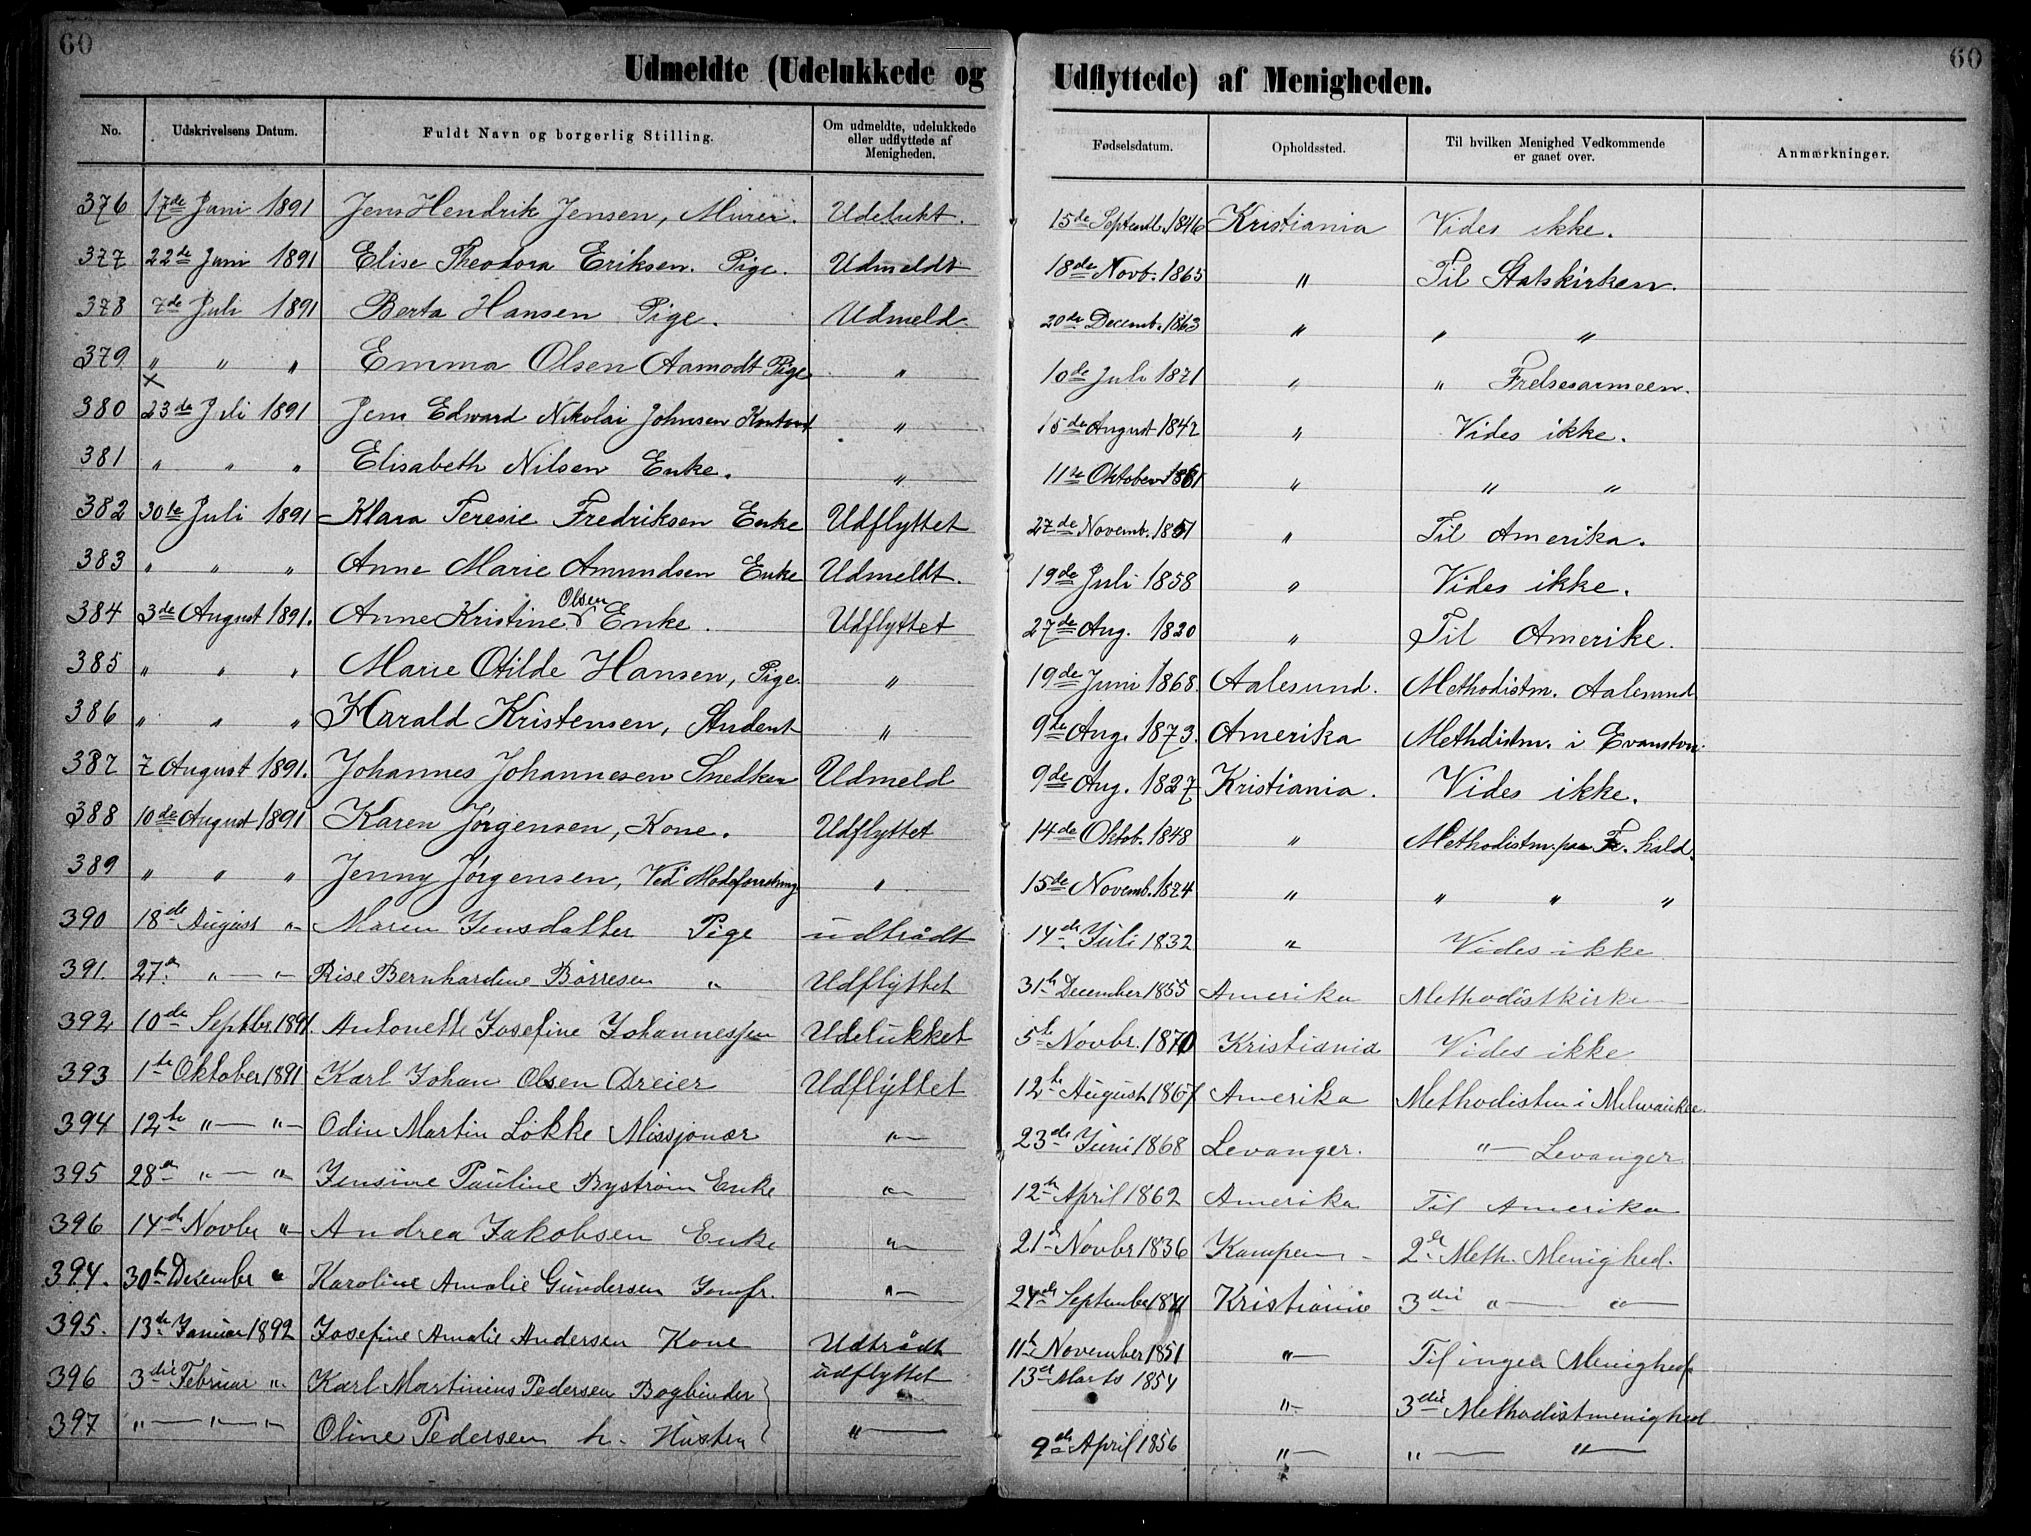 60 60
Udmeldte (Udelukkede og Udflyttede) af Menigheden.
No. Udskrivelsens Datum. Fuldt Navn og borgerlig Stilling. Om udmeldte, udelukkede eller udflyttede af Menigheden. Fødselsdatum. Opholdssted. Til hvilken Menighed Vedkommende er gaaet over. Anmærkninger.
376 17de Juni 1891 Jens Hendrik Jensen, Murer. Udelukt. 15de Septemb. 1846 Kristiania Vides ikke.
377 22de Juni 1891 Elise Theodora Eriksen. Pige. Udmeldt 18de Novb. 1865 " Til Statskirken.
378 7de Juli 1891 Berta Hansen Pige. Udmeld 20de Decemb. 1863 " " "
379 " " " Emma Olsen Aamodt Pige " 10de Juli 1871 " " Frelsesarmeen.
x
380 23de Juli 1891 Jens Edward Nikolai Johnsen " 15de August 1842 " Vides ikke.
381 " " " Elisabeth Nilsen Enke. " 11te Oktober 1861 " " "
382 30te Juli 1891 Klara Teresie Fredriksen Enke Udflyttet 27de Novemb. 1851 " Til Amerika.
383 " " " Anne Marie Amundsen Enke Udmeldt. 19de Juli 1858 " Vides ikke.
384 3de August 1891. Anne Kristine Olsen Enke. Udflyttet 27de Aug. 1820 " Til Amerike.
385 " " " Marie Otilde Hansen, Pige. " 19de Juni 1868. Aalesund. Methodistm. Aalesund
386 " " " Harald Kristensen, Student " 9de Aug. 1873. Amerika Methdistm. i Evanston.
387 7 August 1891. Johannes Johannesen Snedker Udmeld 9de Aug. 1827 Kristiania. Vides ikke.
388 10de August 1891 Karen Jørgensen, Kone. Udflyttet 14de Oktob. 1848 " Methodistm. paa Fr. hald.
389 " " " Jenny Jørgensen, Ved Modeforretning " 15de Novemb. 1874 " " " "
390 18de August " Maren Jensdatter Pige udtrådt 14de Juli 1832 " Vides ikke
391. 27de " — " Rise Bernhardine Börresen " Udflyttet 31te December 1855 Amerika Methodistkirke
392 10de Septbr 1891. Antonette Josefine Johannessen Udelukket 5te Novbr. 1870 Kristiania Vides ikke
393 1te Oktober 1891 Karl Johan Olsen Dreier Udflyttet 12te August 1867 Amerika Methodistm i Milwaukee.
394 12te " — " Odin Martin Løkke Missjonær " 23de Juni 1868 Levanger. " — Levanger
395 28de " — " Jensine Pauline Byström Enke " 12te April 1862 Amerika Til Amerika
396 14de Novbr " Andrea Jakobsen Enke " 21de Novbr 1836 Kampen 2de Meth. Menighed.
394. 30te Desember " Karoline Amalie Gundersen Jomfr. " 24de September 1871 Kristiania 3die " — "
395. 13de Januar 1892 Josefine Amalie Andersen Kone Udtrådt 11te November 1851 " Til ingen Menighed
396 3die Februar " Karl Martinius Pedersen Bogbinder udflyttet 13de Marts 1854 " 3die Methodistmenighed
397 " — " — " Oline Pedersen h. Hustru " 9de April 1856 " " — "